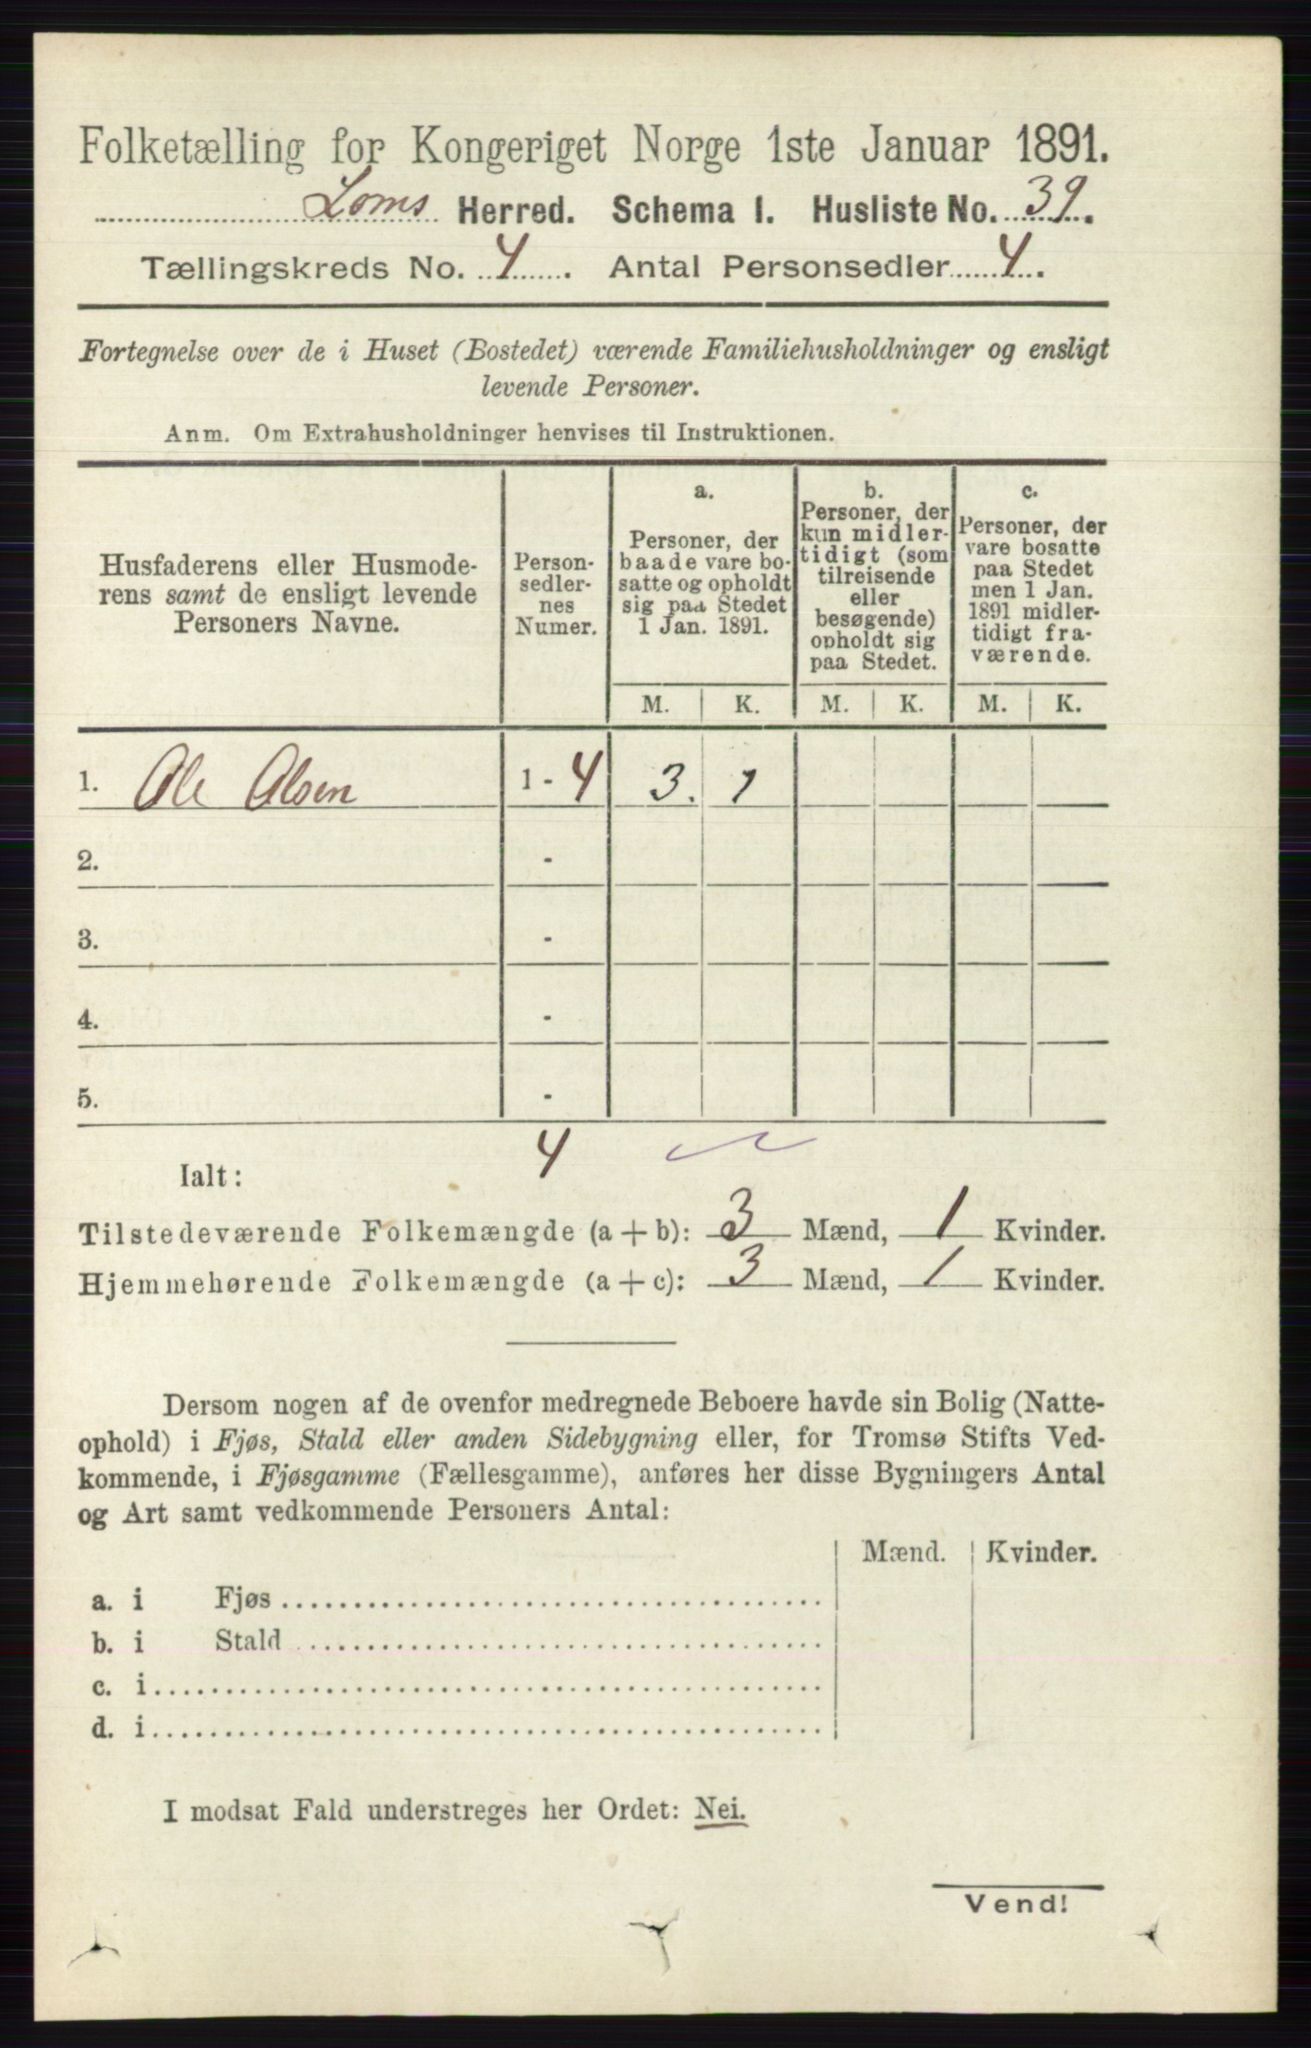 Folketælling for Kongeriget Norge 1ste Januar 1891.
Loms Herred. Schema I. Husliste No. 39.
Tællingskreds No. 4. Antal Personsedler 4.
Fortegnelse over de i Huset (Bostedet) værende Familiehusholdninger og ensligt
levende Personer.
Anm. Om Extrahusholdninger henvises til Instruktionen.
Husfaderens eller Husmode-
rens samt de ensligt levende
Personers Navne.
Person-
sedler-
nes
Numer.
a.
Personer, der
baade vare bo-
satte og opholdt
sig paa Stedet
1 Jan. 1891.
b.
Personer, der
kun midler-
tidigt (som
tilreisende
eller
besøgende)
opholdt sig
paa Stedet.
c.
Personer, der
vare bosatte
paa Stedet
men 1 Jan.
1891 midler-
tidigt fra-
værende.
M. K. M. K. M. K.
1. Ole Olsen 1 - 4 3. 1
2. -
3. -
4. -
5. -
Ialt: 4
Tilstedeværende Folkemængde (a + b): 3 Mænd, 1 Kvinder.
Hjemmehørende Folkemængde (a + c): 3 Mænd, 1 Kvinder.
Dersom nogen af de ovenfor medregnede Beboere havde sin Bolig (Natte-
ophold) i Fjøs, Stald eller anden Sidebygning eller, for Tromsø Stifts Ved-
kommende, i Fjøsgamme (Fællesgamme), anføres her disse Bygningers Antal
og Art samt vedkommende Personers Antal:
Mænd. Kvinder.
a. i Fjøs
b. i Stald
c. i
d. i
I modsat Fald understreges her Ordet: Nei.
Vend!